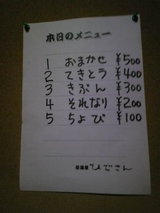 本日のメニュー
1 おまかせ ¥500
2 てきとう ¥400
3 きぶん ¥300
4 それなり ¥200
5 ちょび ¥100
居酒屋 ひでさん